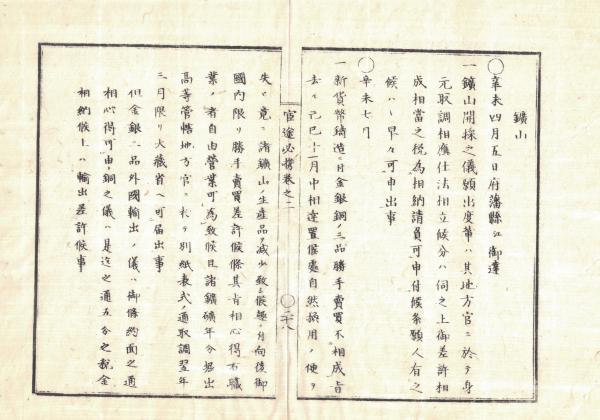 鑛山
◯辛未四月五日府藩縣江御達
一鑛山開採之儀願出度輩ハ其地方官ニ於テ身
元取調相應仕法相立候分ハ伺之上御差許相
成相當之税為相納請負可申付候条願人有之
候ハヽ早々可申出事
◯辛未七月
一新貨幣鋳造ニ付金銀銅ノ三品勝手賣買不相成旨
去ル己巳十一月中相達置候處自然採用ノ便ヲ
官途必携巻之二
◯二十八
失ヒ竟ニ諸鑛山ノ生産品ヲ減少致シ候趣ニ付向後御
國内限リ勝手賣買差許候條其旨相心得右職
業ノ者自由營業可為致候且諸鑛礦年分堀出
高等管轄地方官ニ於テ別紙表式ノ通取調翌年
三月限リ大藏省ヘ可届出事
但金銀二品外國輸出ノ儀ハ御條約面之通
相心得可申銅之儀ハ是迄之通五分之税金
相納候上ハ輸出差許候事